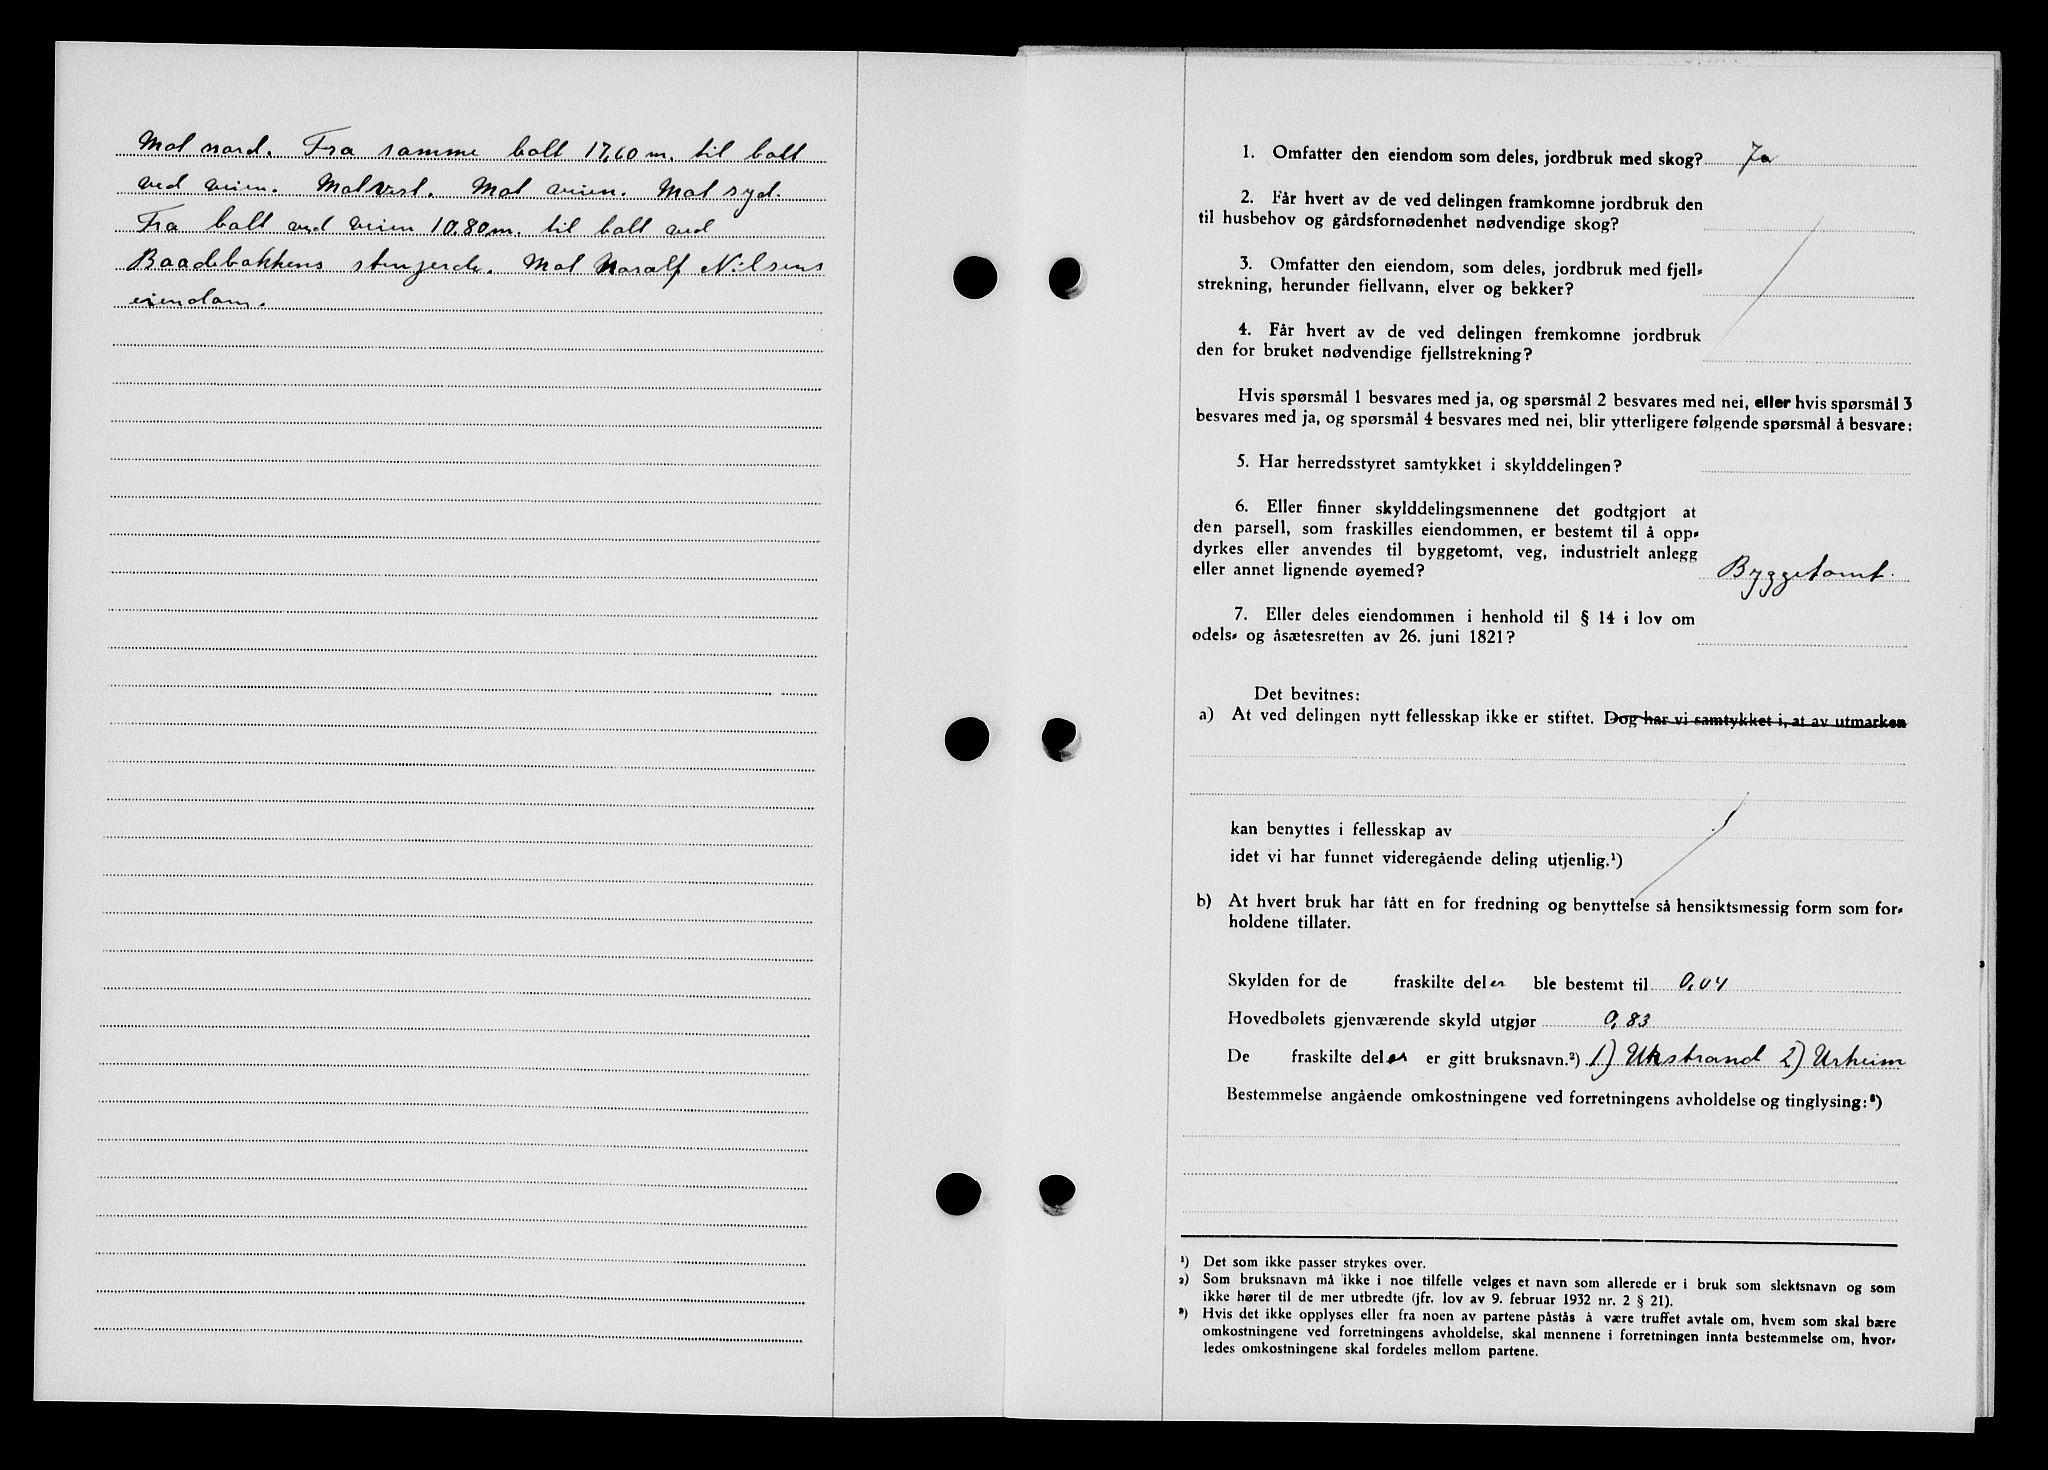 Mot nord. Fra samme bolt 17,60 m. til bolt
ved veien. Mot vest. Mot veien. Mot syd.
Fra bolt ved veien 10,80 m. til bolt ved
Baadebakkens stengjerde. Mot Naralf Nilsens
eiendom.
1. Omfatter den eiendom som deles, jordbruk med skog? Ja
2. Får hvert av de ved delingen framkomne jordbruk den
til husbehov og gårdsfornødenhet nødvendige skog?
3. Omfatter den eiendom, som deles, jordbruk med fjell-
strekning, herunder fiellvann, elver og bekker?
4. Får hvert av de ved delingen fremkomne jordbruk
den for bruket nødvendige fjellstrekning?
Hvis spørsmål 1 besvares med ja, og spørsmål 2 besvares med nei, eller hvis spørsmål 3
besvares med ja, og spørsmål 4 besvares med nei, blir ytterligere følgende spørsmål å besvare:
5. Har herredsstyret samtykket i skylddelingen?
6. Eller finner skylddelingsmennene det godtgjort at
den parsell, som fraskilles eiendommen, er bestemt til å opp-
dyrkes eller anvendes til byggetomt, veg, industrielt anlegg
eller annet lignende øyemed? Byggetomt.
7. Eller deles eiendommen i henhold til § 14 i lov om
odels- og åsætesretten av 26. juni 1821?
Det bevitnes:
a) At ved delingen nytt fellesskap ikke er stiftet. Dog har vi samtykket i, at av utmarken
kan benyttes i fellesskap av
idet vi har funnet videregående deling utjenlig.¹)
b) At hvert bruk har fått en for fredning og benyttelse så hensiktsmessig form som for-
holdene tillater.
Skylden for de fraskilte deler ble bestemt til 0,04
Hovedbølets gjenværende skyld utgjør 0,83
De fraskilte deler er gitt bruksnavn.²) 1) Ukstrand 2) Urheim
Bestemmelse angående omkostningene ved forretningens avholdelse og tinglysing:³)
¹) Det som ikke passer strykes over.
²) Som bruksnavn må ikke i noe tilfelle velges et navn som allerede er i bruk som slektsnavn og som
ikke hører til de mer utbredte (jfr. lov av 9. februar 1932 nr. 2 § 21).
³) Hvis det ikke opplyses eller fra noen av partene påstås å være truffet avtale om, hvem som skal bære
omkostningene ved forretningens avholdelse, skal mennene i forretningen innta bestemmelse om, hvor-
ledes omkostningene skal fordeles mellom partene.